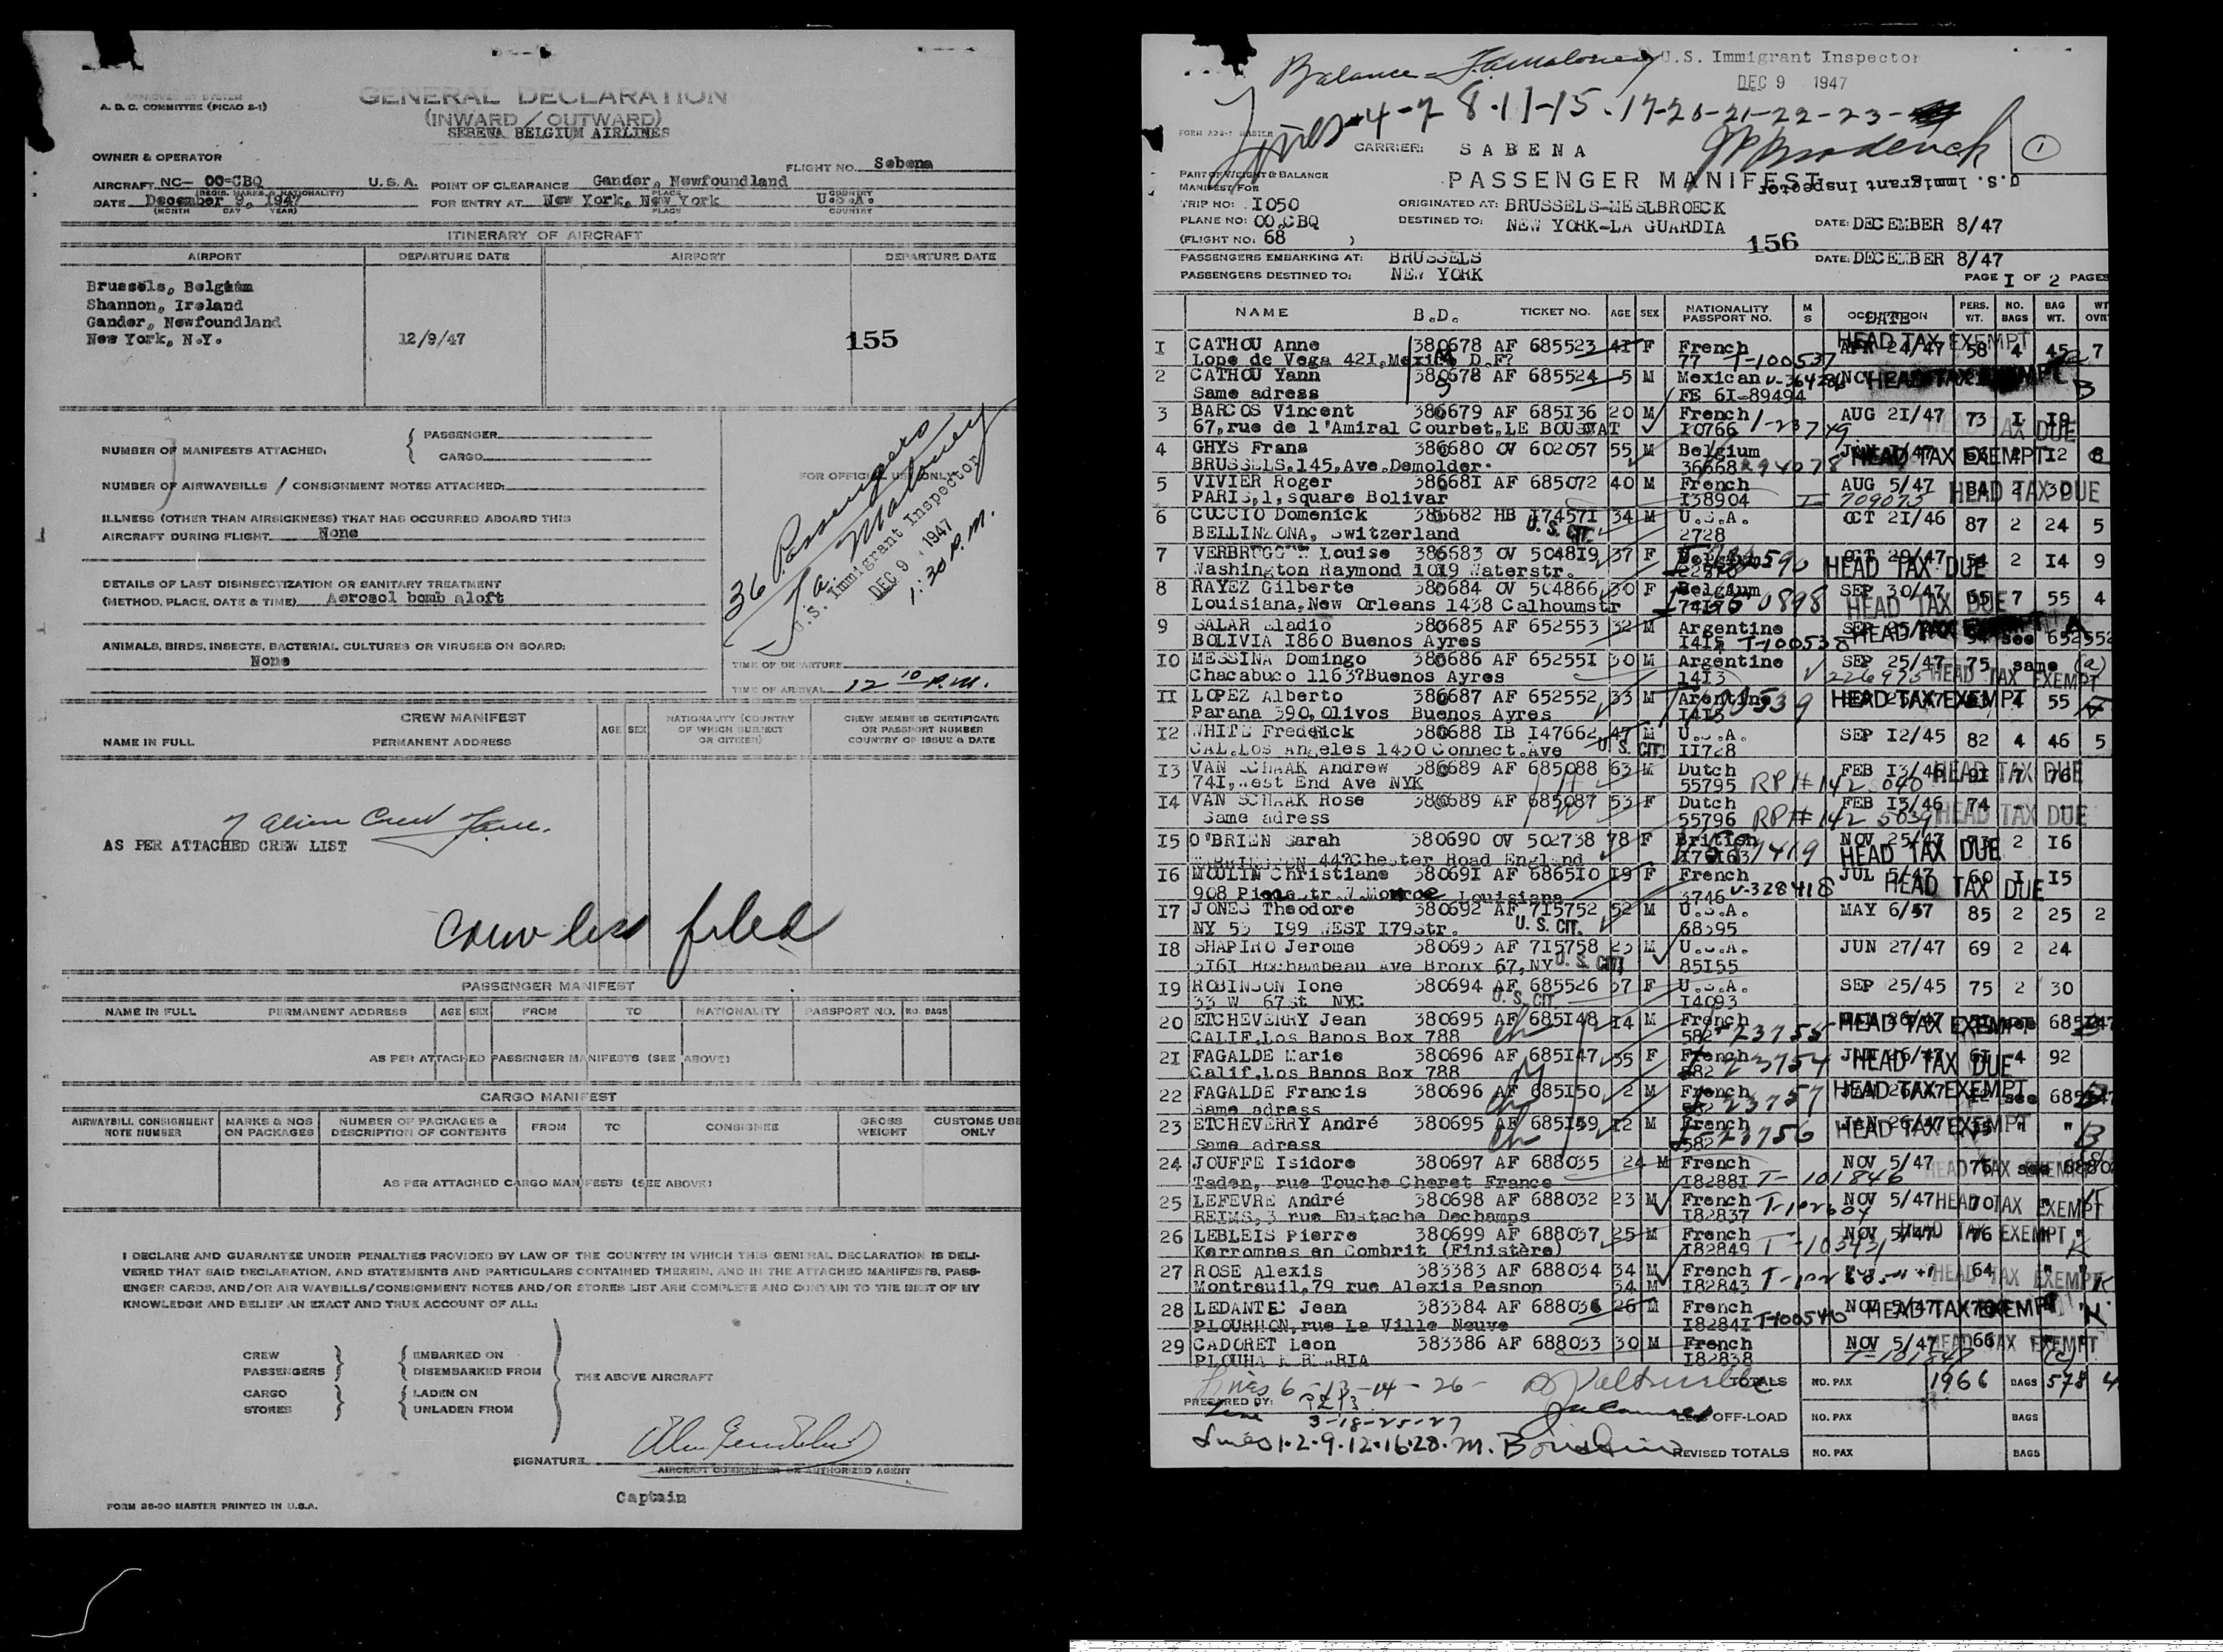 A. D. C. COMMITTEE (PICAO 2-1)
GENERAL DECLARATION
(INWARD / OUTWARD)
SEBENA BELGIUM AIRLINES
OWNER & OPERATOR
FLIGHT NO. Sebena
AIRCRAFT NC- OO-CBQ U.S.A. POINT OF CLEARANCE Gander, Newfoundland
(REGIS. MARKS & NATIONALITY) PLACE COUNTRY
DATE December 9, 1947 FOR ENTRY AT New York, New York U.S.A.
(MONTH DAY YEAR) PLACE COUNTRY
ITINERARY OF AIRCRAFT
AIRPORT DEPARTURE DATE AIRPORT DEPARTURE DATE
Brussels, Belgium
Shannon, Ireland
Gander, Newfoundland
New York, N.Y. 12/9/47 155
NUMBER OF MANIFESTS ATTACHED: PASSENGER
CARGO
FOR OFFICIAL USE ONLY
NUMBER OF AIRWAYBILLS / CONSIGNMENT NOTES ATTACHED:
ILLNESS (OTHER THAN AIRSICKNESS) THAT HAS OCCURRED ABOARD THIS
AIRCRAFT DURING FLIGHT. None
DETAILS OF LAST DISINSECTIZATION OR SANITARY TREATMENT
(METHOD, PLACE, DATE & TIME) Aerosol bomb aloft
ANIMALS, BIRDS, INSECTS, BACTERIAL CULTURES OR VIRUSES ON BOARD:
None
36 Passengers
U.S. Immigrant Inspector
DEC 9 1947
1:30 P.M.
TIME OF DEPARTURE
TIME OF ARRIVAL 12 10 P.M.
CREW MANIFEST
NAME IN FULL PERMANENT ADDRESS AGE SEX NATIONALITY (COUNTRY OF WHICH SUBJECT OR CITIZEN) CREW MEMBERS CERTIFICATE OR PASSPORT NUMBER COUNTRY OF ISSUE & DATE
7 alien Crew
AS PER ATTACHED CREW LIST
Crew list filed
PASSENGER MANIFEST
NAME IN FULL PERMANENT ADDRESS AGE SEX FROM TO NATIONALITY PASSPORT NO. NO. BAGS
AS PER ATTACHED PASSENGER MANIFESTS (SEE ABOVE)
CARGO MANIFEST
AIRWAYBILL CONSIGNMENT NOTE NUMBER MARKS & NOS ON PACKAGES NUMBER OF PACKAGES & DESCRIPTION OF CONTENTS FROM TO CONSIGNEE GROSS WEIGHT CUSTOMS USE ONLY
AS PER ATTACHED CARGO MANIFESTS (SEE ABOVE)
I DECLARE AND GUARANTEE UNDER PENALTIES PROVIDED BY LAW OF THE COUNTRY IN WHICH THIS GENERAL DECLARATION IS DELI-
VERED THAT SAID DECLARATION, AND STATEMENTS AND PARTICULARS CONTAINED THEREIN, AND IN THE ATTACHED MANIFESTS, PASS-
ENGER CARDS, AND/OR AIR WAYBILLS/CONSIGNMENT NOTES AND/OR STORES LIST ARE COMPLETE AND CONTAIN TO THE BEST OF MY
KNOWLEDGE AND BELIEF AN EXACT AND TRUE ACCOUNT OF ALL:
CREW EMBARKED ON
PASSENGERS DISEMBARKED FROM
THE ABOVE AIRCRAFT
CARGO LADEN ON
STORES UNLADEN FROM
SIGNATURE
AIRCRAFT COMMANDER OR AUTHORIZED AGENT
Captain
FORM 35-30 MASTER PRINTED IN U.S.A.
Balance - U.S. Immigrant Inspector
DEC 9 1947
Lines 4-7 8-11-15-17-20-21-22-23-
CARRIER: SABENA
1
PART OF WEIGHT & BALANCE
MANIFEST FOR
PASSENGER MANIFEST
U.S. Immigrant Inspector
TRIP NO: I050 ORIGINATED AT: BRUSSELS-MESLBROECK
PLANE NO: OO.CBQ DESTINED TO: NEW YORK-LA GUARDIA DATE: DECEMBER 8/47
(FLIGHT NO: 68 ) 156
PASSENGERS EMBARKING AT: BRUSSELS DATE: DECEMBER 8/47
PASSENGERS DESTINED TO: NEW YORK
PAGE I OF 2 PAGES
NAME B.D. TICKET NO. AGE SEX NATIONALITY PASSPORT NO. M S DATE PERS. WT. NO. BAGS BAG WT. WT OVR
I CATHOU Anne 380678 AF 685523 41 F French 24/47 58 4 45 7 HEAD TAX EXEMPT
Lope de Vega 42I, Mexico D.F? 77 T-100537
2 CATHOU Yann 380678 AF 685524 5 M Mexican HEAD TAX EXEMPT B
Same adress FE 6I-89494
3 BARCOS Vincent 380679 AF 685I36 20 M French AUG 2I/47 73 I I9
67, rue de l'Amiral Courbet, LE BOUSCAT I0766 I-23749 HEAD TAX DUE
4 GHYS Frans 380680 OV 602057 55 M Belgium HEAD TAX EXEMPT I2
BRUSSELS, 145, Ave. Demolder. 36668
5 VIVIER Roger 38068I AF 685072 40 M French AUG 5/47 84 2 30 HEAD TAX DUE
PARIS, 1, square Bolivar I38904 I-709073
6 CUCCIO Domenick 380682 HB I7457I 34 M U.S.A. OCT 2I/46 87 2 24 5
BELLINZONA, Switzerland U.S. CIT. 2728
7 Louise 380683 OV 504819 37 F Belgium OCT 29/47 54 2 I4 9
Washington Raymond 1019 Waterstr. HEAD TAX DUE
8 RAYEZ Gilberte 380684 OV 504866 30 F Belgium SEP 30/47 55 7 55 4
Louisiana, New Orleans 1438 Calhoumstr HEAD TAX DUE
9 SALAR Eladio 380685 AF 652553 32 M Argentine see 652552
BOLIVIA I860 Buenos Ayres T-100538
I0 MESSINA Domingo 380686 AF 65255I 30 M Argentine SEP 25/47 75 same (a)
Chacabuco 1163?Buenos Ayres I4I3 HEAD TAX EXEMPT
II LOPEZ Alberto 380687 AF 652552 33 M Arentine HEAD TAX EXEMPT 4 55
Parana 390, Olivos Buenos Ayres I4I5
I2 WHITE Frederick 380688 IB I47662 47 M U.S.A. SEP I2/45 82 4 46 5
CAL. Los Angeles 1430 Connect. Ave U.S. CIT. II728
I3 VAN SCHAAK Andrew 380689 AF 685088 63 M Dutch FEB I3/46 91 7 76 HEAD TAX DUE
74I, West End Ave NYK 55795 RP# 142 040
I4 VAN SCHAAK Rose 380689 AF 685087 53 F Dutch FEB I3/46 74 - -
Same adress 55796 RP# 142 5039 HEAD TAX DUE
I5 O'BRIEN Sarah 380690 OV 502738 78 F British NOV 25/47 2 I6
WARRINGTON 44?Chester Road England HEAD TAX DUE
I6 MOULIN Christiane 38069I AF 6865I0 I9 F French JUL 5/47 60 I I5
Louisiana 3746 V-328418 HEAD TAX DUE
I7 JONES Theodore 380692 AF 715752 52 M U.S.A. MAY 6/47 85 2 25 2
NY 33 I99 WEST I79str. U.S. CIT. 68395
I8 SHAPIRO Jerome 380693 AF 7I5758 23 M U.S.A. JUN 27/47 69 2 24
3I6I Rochambeau Ave Bronx 67, NY U.S. CIT. 85I55
I9 ROBINSON Ione 380694 AF 685526 37 F U.S.A. SEP 25/45 75 2 30
33 W 67st NYC U.S. CIT I4093
20 ETCHEVERRY Jean 380695 AF 685I48 I4 M French HEAD TAX EXEMPT
CALIF, Los Banos Box 788 582 I-23755
2I FAGALDE Marie 380696 AF 685I47 35 F French JAN 26/47 61 4 92
Calif, Los Banos Box 788 582 I-23754 HEAD TAX DUE
22 FAGALDE Francis 380696 AF 685I50 2 M French HEAD TAX EXEMPT see
Same adress 582 I-23757
23 ETCHEVERRY André 380695 AF 685I59 I2 M French JAN 26/47 " " B
Same adress 582 I-23756 HEAD TAX EXEMPT
24 JOUFFE Isidore 380697 AF 688035 24 M French NOV 5/47 76 see HEAD TAX EXEMPT
Taden, rue Touche Cheret France I8288I T-101846
25 LEFEVRE André 380698 AF 688032 23 M French NOV 5/47 70 HEAD TAX EXEMPT
REIMS, 3 rue Eustache Dechamps I82837 T-102604
26 LEBLEIS Pierre 380699 AF 688037 25 M French NOV 5/47 76 HEAD TAX EXEMPT " K
Kerrommes en Combrit (Finistère) I82849 T-103431
27 ROSE Alexis 383383 AF 688034 34 M French 64 HEAD TAX EXEMPT K
Montreuil, 79 rue Alexis Pesnon 34 M I82843
28 LEDANTEC Jean 383384 AF 688036 26 M French NOV 5/47 HEAD TAX EXEMPT
PLOURHON, rue La Ville Neuve I8284I T-100540
29 CADORET Leon 383386 AF 688033 30 M French NOV 5/47 66 HEAD TAX EXEMPT
PLOUHA I82838 T-101847 (C)
Lines 6-13-14-26- TOTALS NO. PAX 1966 BAGS 578
PREPARED BY:
Line 3-18-25-27 LESS OFF-LOAD NO. PAX BAGS
Lines 1-2-9-12-16-28- M. REVISED TOTALS NO. PAX BAGS